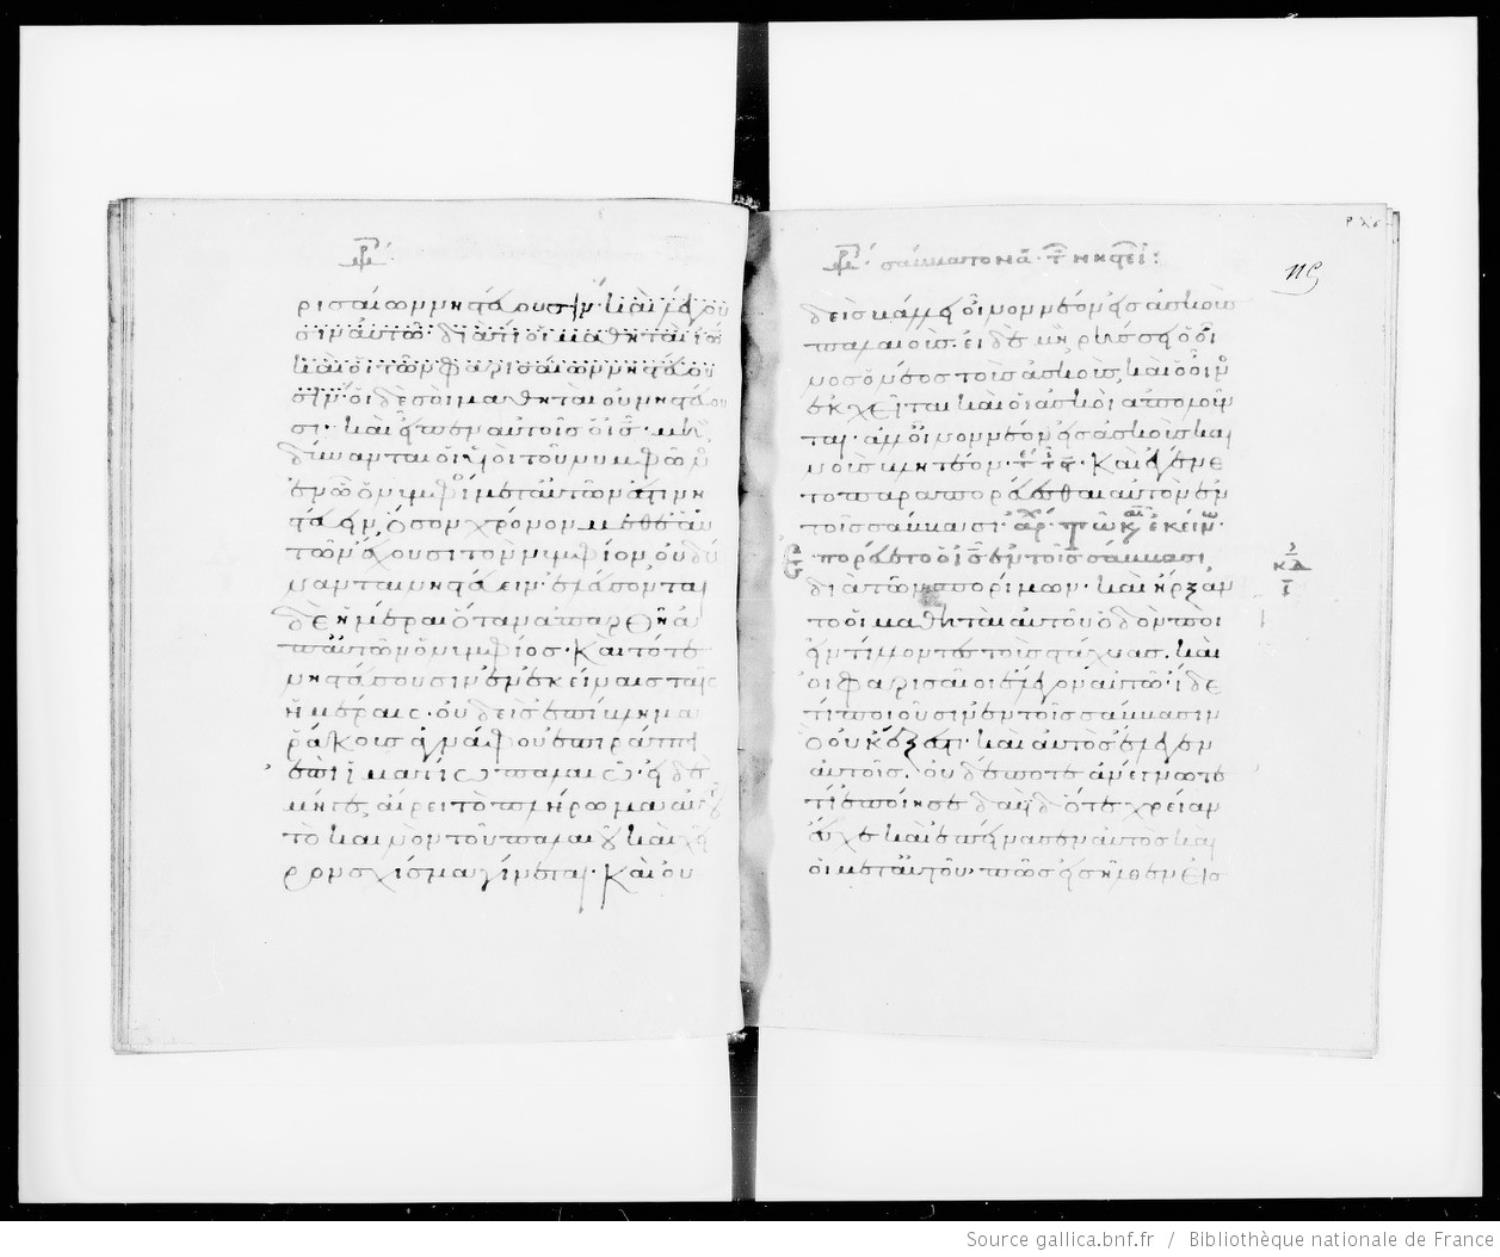 ρισαίων νηστεύουσιν· καὶ λέγου
σιν αὐτῶ· διατί οἱ μαθηταὶ ἰω
καὶ οἱ τῶν φαρισαίων νηστεύου
σιν· οἱ δὲ σοὶ μαθηταὶ οὐ νηστεύου
σι· καὶ εἶπεν αὐτοῖς ὁ ις· μὴ
δύνανται οἱ υἱοὶ τοῦ νυμφῶνος
ἐν ὧ ὁ νυμφίος μετ αὐτῶν ἐστι νη
στεύειν· ὅσον χρόνον μεθ ἑαυ
τῶν ἔχουσι τὸν νυμφίον οὐ δύ
νανται νηστεύειν· ἐλεύσονται
δὲ ἡμέραι ὅταν ἀπαρθῆ ἀ
π αὐτῶν ὁ νυμφίος· Καὶ τότε
νηστεύσουσιν ἐν ἐκείναις ταῖς
ἡμέραις· οὐδεὶς ἐπίβλημα
ῥάκους ἀγνάφου ἐπιράπτει
ἐπὶ ἱματίω παλαιῶ· εἰ δὲ
μήγε, αἴρει τὸ πλήρωμα αὐτοῦ
τὸ καινὸν τοῦ παλαιοῦ καὶ χεῖ
ρον σχίσμα γίνεται· Καὶ οὐ
σάββατον Α τῶν νηστει:
ρις
δεὶς βάλλει οἶνον νέον εἰς ἀσκοὺς
παλαιούς· εἰ δὲ μή, ῥήσσει ὁ οἶ
νος ὁ νέος τοὺς ἀσκούς, καὶ ὁ οἶνος
ἐκχεῖται καὶ οἱ ἀσκοὶ ἀπολοῦν
ται· ἀλλ οἶνον νέον εἰς ἀσκοὺς και
νοὺς βλητέον· Καὶ ἐγένε
το παραπορεύεσθαι αὐτὸν ἐν
τοῖς σάββασι·
πορεύετο ὁ ις ἐν τοῖς σάββασι
διὰ τῶν σπορίμων· καὶ ἤρξαν
το οἱ μαθηταὶ αὐτοῦ ὁδὸν ποι
εῖν τίλλοντες τοὺς στάχυας. καὶ
οἱ φαρισαῖοι ἔλεγον αὐτῶ· ἴδε
τί ποιοῦσιν ἐν τοῖς σάββασιν
ὃ οὐκ ἔξεστι· καὶ αὐτὸς ἔλεγεν
αὐτοῖς. οὐδέποτε ἀνέγνωτε
τί ἐποίησε δαδ ὅτε χρείαν
ἔσχε καὶ ἐπείνασεν αὐτὸς καὶ
οἱ μετ αὐτοῦ· πῶς εἰσῆλθεν εἰς
Source gallica.bnf.fr / Bibliothèque nationale de France